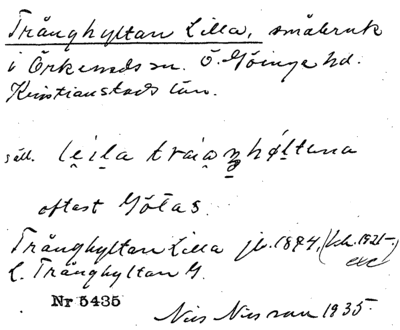 Trånghyltan Lilla, småbruk
i Örkeneds sn. Ö. Göinge hd.
Kristianstads län.
säll. leila traiaŋhøltena
oftast Götas.
Trånghyltan Lilla jb. 1894, (kh. 1921-
L. Trånghyltan G.
Nr 5435
Nils Nilsson 1935.